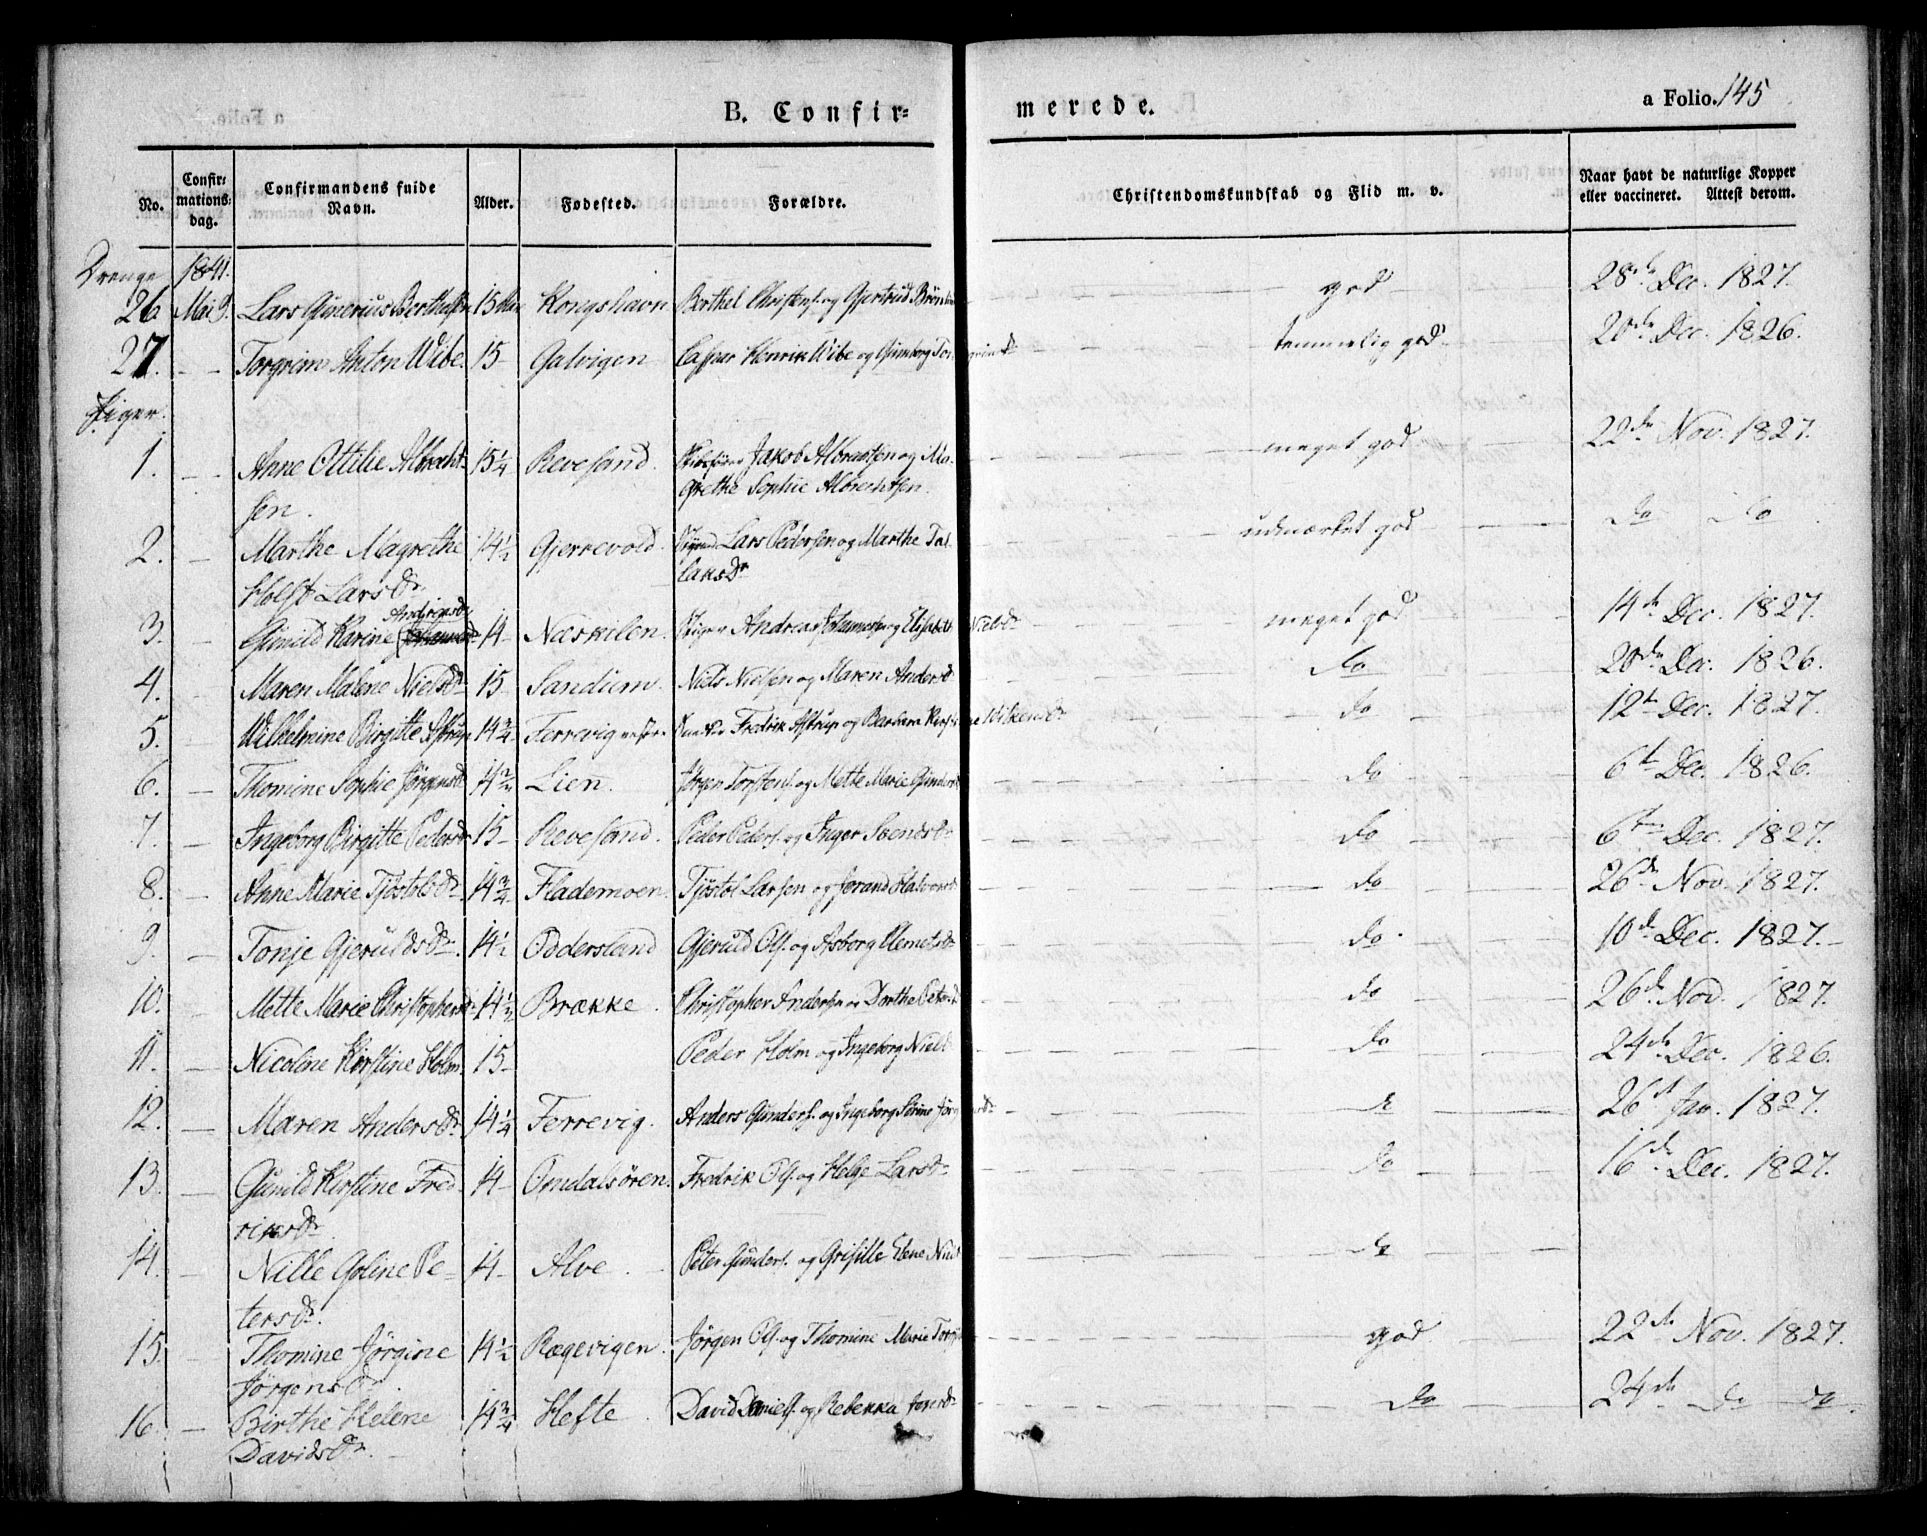 B. Confir= merede. a Folio. 145
No. Confir=mations=dag. Confirmandens fulde Navn. Alder. Fødested. Forældre. Christendomskundskab og Flid m. v. Naar havt de naturlige Kopper eller vaccineret. Attest derom.
Drenge 1841.
26 Mai 9. Lars Gunerius Berthelsen 15 Kongshavn Berthel Christens. og Gjertrud god 28de Dec. 1827.
27. Torgrim Anton Wibe. 15 Galvigen Casper Henrik Wibe og Gunborg temmelig god 20de Dec. 1826.
Piger.
1. Anne Ottilie Albrecht= 15¼ Revesand. Jakob Albrechtsen og Ma= meget god 22de Nov. 1827.
sen. grethe Sophie Albrechtsen.
2. Marthe Magrethe 14½ Gjerrevold. Lars Pedersen og Marthe Tal= udmærket god Do Do
Holst Larsdr laksdr
Andreasdr
3. Gunild Karine 14 Næskilen. Andreas og Elisabeth Nielsdr meget god 14de Dec. 1827.
4. Maren Malene Nielsdr 15 Sandum. Niels Nielsen og Maren Andersd do 20de Dec. 1826.
5. Wilhelmine Birgitte Astrup 14¾ Ferrevig Fredrik Astrup og Barbara do 12te Dec. 1827.
6. Thomine Sophie Jørgensd Lien. Jørgen Torstens. og Mette Marie Gundersd do 6te Dec. 1826.
7. Ingeborg Birgitte Pedersdr 15 Revesand. Peder Peders. og Inger Svendsdr do 6te Dec. 1827.
8. Anne Marie Tjøstolsdr 14¾ Flademoen Tjøstol Larsen og Jorand Halvorsd do 26de Nov. 1827.
9. Tonje Gjeruldsdr. 14½ Oddersland Gjeruld Ols. og Asborg Clemetsdr do 10de Dec. 1827.
10. Mette Marie Christophersd 14½ Brække. Christopher Anders. og Dorthe Petersd do 26de Nov. 1827.
11. Nicoline Kirstine Holm. 15 Peder Holm og Ingeborg Nielsd do 24de Dec. 1826.
12. Maren Andersdr. 14¼ Ferrevig. Anders Gunders. og Ingeborg Serine 26de Jan. 1827.
13. Gunild Kirstine Fred= 14 Omdalsøren. Fredrik Ols. og Helge Larsdr do 16de Dec. 1827.
riksdr
14. Nille Goline Pe= 14 Alve. Peter Gunders. og Grisille Elene Nielsd do
tersdr.
15. Thomine Jørgine 14½ Rægevigen. Jørgen Ols. og Thomine Marie god 22de Nov. 1827.
Jørgensdr.
16. Birthe Helene 14¾ Hefte. David Daniels. og Rebekka do 24de do do
Davidsdr